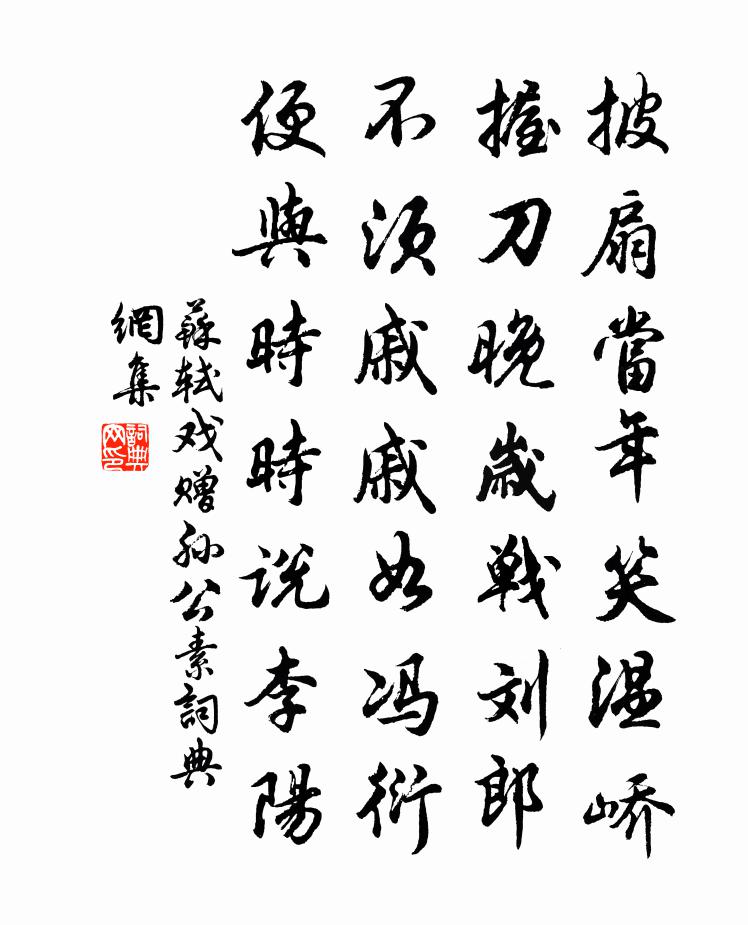 披扇當年笑温峤
握刀晚歲戰刘郎
不須戚戚如冯衍
便與時時説李陽
蘇軾戏赠孙公素詞典
網集
詞典
网印